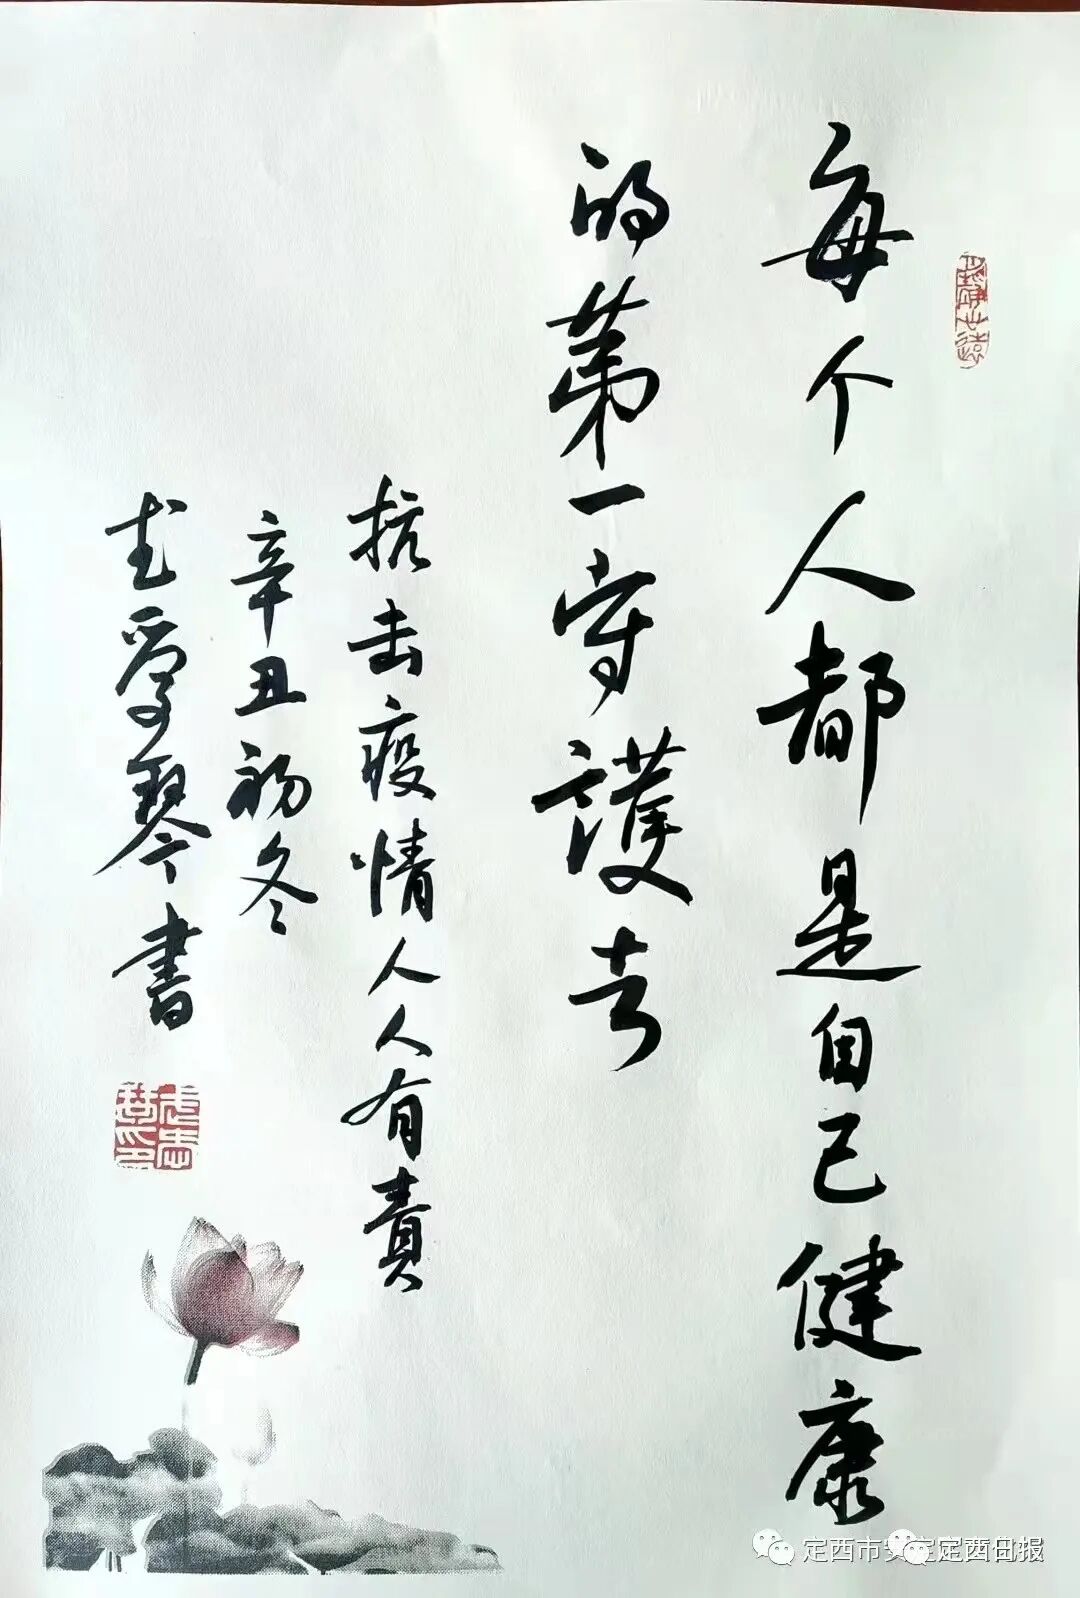 每个人都是自己健康
的第一守護者
抗击疫情人人有責
辛丑初冬
琴書
定西日报